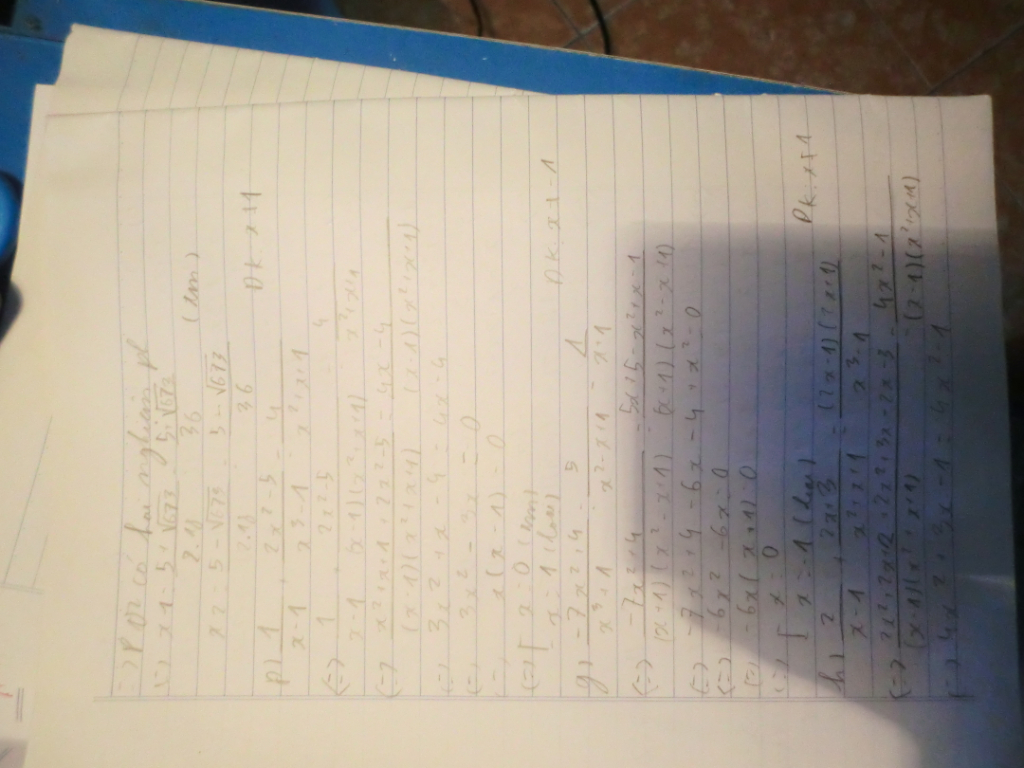 => PT có hai nghiệm pb
(=) x1 = 5 + √673 / 2.18 = 5 + √673 / 36 (tm)
x2 = 5 - √673 / 2.18 = 5 - √673 / 36
f) 1/x-1 + 2x²-5/x³-1 = 4/x²+x+1 ĐK: x≠1
(=) 1/x-1 + 2x²-5/(x-1)(x²+x+1) = 4/x²+x+1
(=) x²+x+1+2x²-5/(x-1)(x²+x+1) = 4x-4/(x-1)(x²+x+1)
(=) 3x²+x-4 = 4x-4
(=) 3x²-3x = 0
(=) x(x-1) = 0
(=) [ x=0 (tm)
x=1 (loại)
g) -7x²+4/x³+1 = 5/x²-x+1 - 1/x+1 ĐK: x≠-1
(=) -7x²+4/(x+1)(x²-x+1) = 5x+5-x²+x-1/(x+1)(x²-x+1)
(=) -7x²+4-6x-4+x²=0
(=) -6x²-6x=0
(=) -6x(x+1)=0
(=) [ x=0
x=-1 (loại)
h) 2/x-1 + 2x+3/x²+x+1 = (2x-1)(2x+1)/x³-1 ĐK: x≠1
(=) 2x²+2x+2+2x²+3x-2x-3/(x-1)(x²+x+1) = 4x²-1/(x-1)(x²+x+1)
(=) 4x²+3x-1=4x²-1